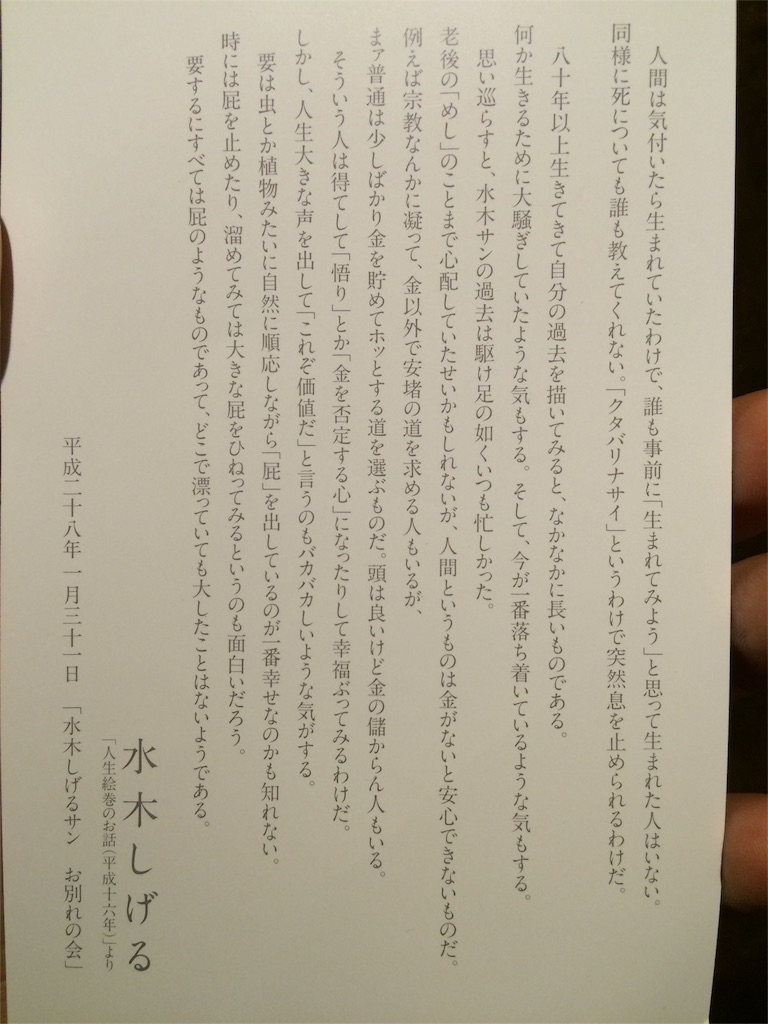 人間は気付いたら生まれていたわけで、誰も事前に「生まれてみよう」と思って生まれた人はいない。
同様に死についても誰も教えてくれない。「クタバリナサイ」というわけで突然息を止められるわけだ。
八十年以上生きてきて自分の過去を描いてみると、なかなかに長いものである。
何か生きるために大騒ぎしていたような気もする。そして、今が一番落ち着いているような気もする。
思い巡らすと、水木サンの過去は駆け足の如くいつも忙しかった。
老後の「めし」のことまで心配していたせいかもしれないが、人間というものは金がないと安心できないものだ。
例えば宗教なんかに凝って、金以外で安堵の道を求める人もいるが、
まァ普通は少しばかり金を貯めてホッとする道を選ぶものだ。頭は良いけど金の儲からん人もいる。
そういう人は得てして「悟り」とか「金を否定する心」になったりして幸福ぶってみるわけだ。
しかし、人生大きな声を出して「これぞ価値だ」と言うのもバカバカしいような気がする。
要は虫とか植物みたいに自然に順応しながら「屁」を出しているのが一番幸せなのかも知れない。
時には屁を止めたり、溜めてみては大きな屁をひねってみるというのも面白いだろう。
要するにすべては屁のようなものであって、どこで漂っていても大したことはないようである。
水木しげる
「人生絵巻のお話(平成十六年)」より
平成二十八年一月三十一日 「水木しげるサン お別れの会」